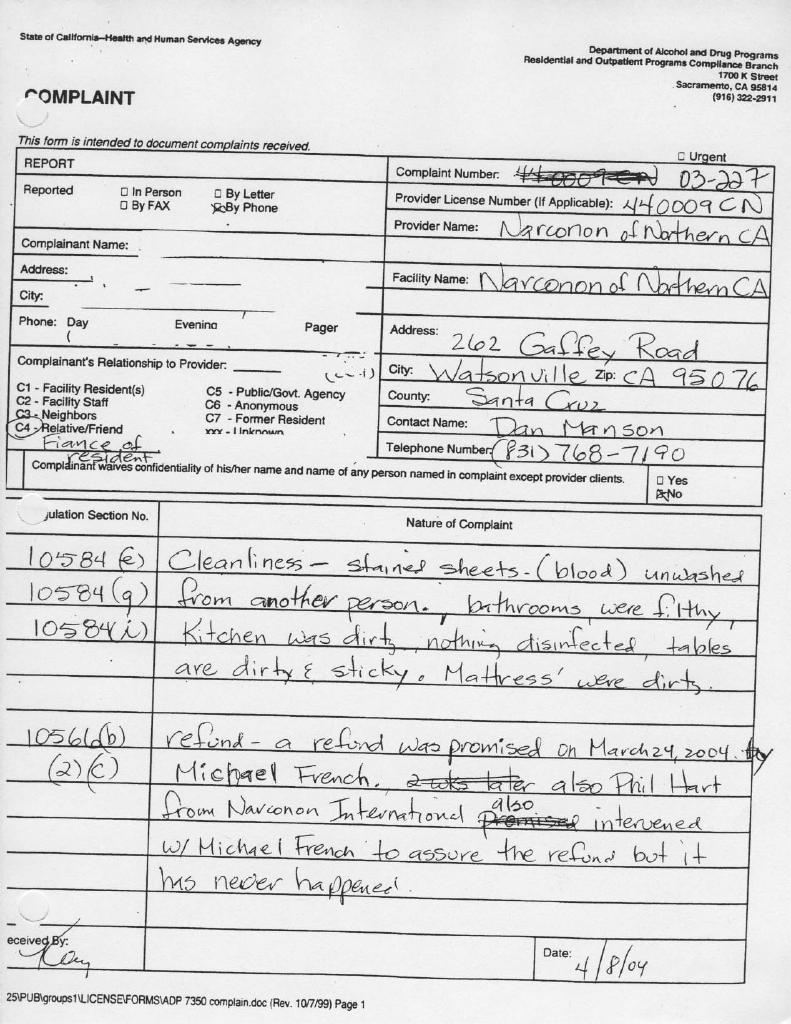 State of California—Health and Human Services Agency
Department of Alcohol and Drug Programs
Residential and Outpatient Programs Compliance Branch
1700 K Street
Sacramento, CA 95814
(916) 322-2911
COMPLAINT
This form is intended to document complaints received.
□ Urgent
REPORT
Reported □ In Person □ By Letter
□ By FAX ☒ By Phone
Complainant Name:
Address:
City:
Phone: Day Evening Pager
(
Complainant's Relationship to Provider:
C1 - Facility Resident(s) C5 - Public/Govt. Agency
C2 - Facility Staff C6 - Anonymous
C3 - Neighbors C7 - Former Resident
C4 - Relative/Friend xxx - Unknown
Fiance of
resident
Complaint Number: 440009CN 03-227
Provider License Number (If Applicable): 440009CN
Provider Name: Narconon of Northern CA
Facility Name: Narconon of Northern CA
Address: 262 Gaffey Road
City: Watsonville Zip: CA 95076
County: Santa Cruz
Contact Name: Dan Manson
Telephone Number: (831) 768-7190
Complainant waives confidentiality of his/her name and name of any person named in complaint except provider clients. □ Yes
☒ No
ulation Section No. Nature of Complaint
10584 (e) Cleanliness - stained sheets - (blood) unwashed
10584 (g) from another person., bathrooms were filthy,
10584 (i) Kitchen was dirty, nothing disinfected, tables
are dirty & sticky. Mattress' were dirty.
10561(b) refund - a refund was promised on March 24, 2004. by
(2)(c) Michael French. 2 wks later also Phil Hart
from Narconon International promised also intervened
w/ Michael French to assure the refund but it
has never happened.
eceived By: Kay
Date: 4/8/04
25\PUB\groups1\LICENSE\FORMS\ADP 7350 complain.doc (Rev. 10/7/99) Page 1